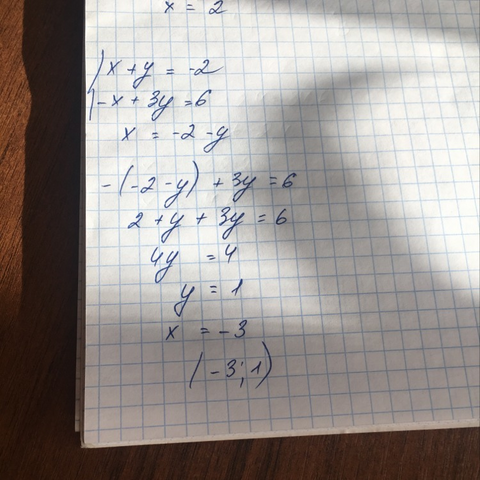 x = 2
x + y = -2
-x + 3y = 6
x = -2 - y
-(-2 - y) + 3y = 6
2 + y + 3y = 6
4y = 4
y = 1
x = -3
(-3; 1)